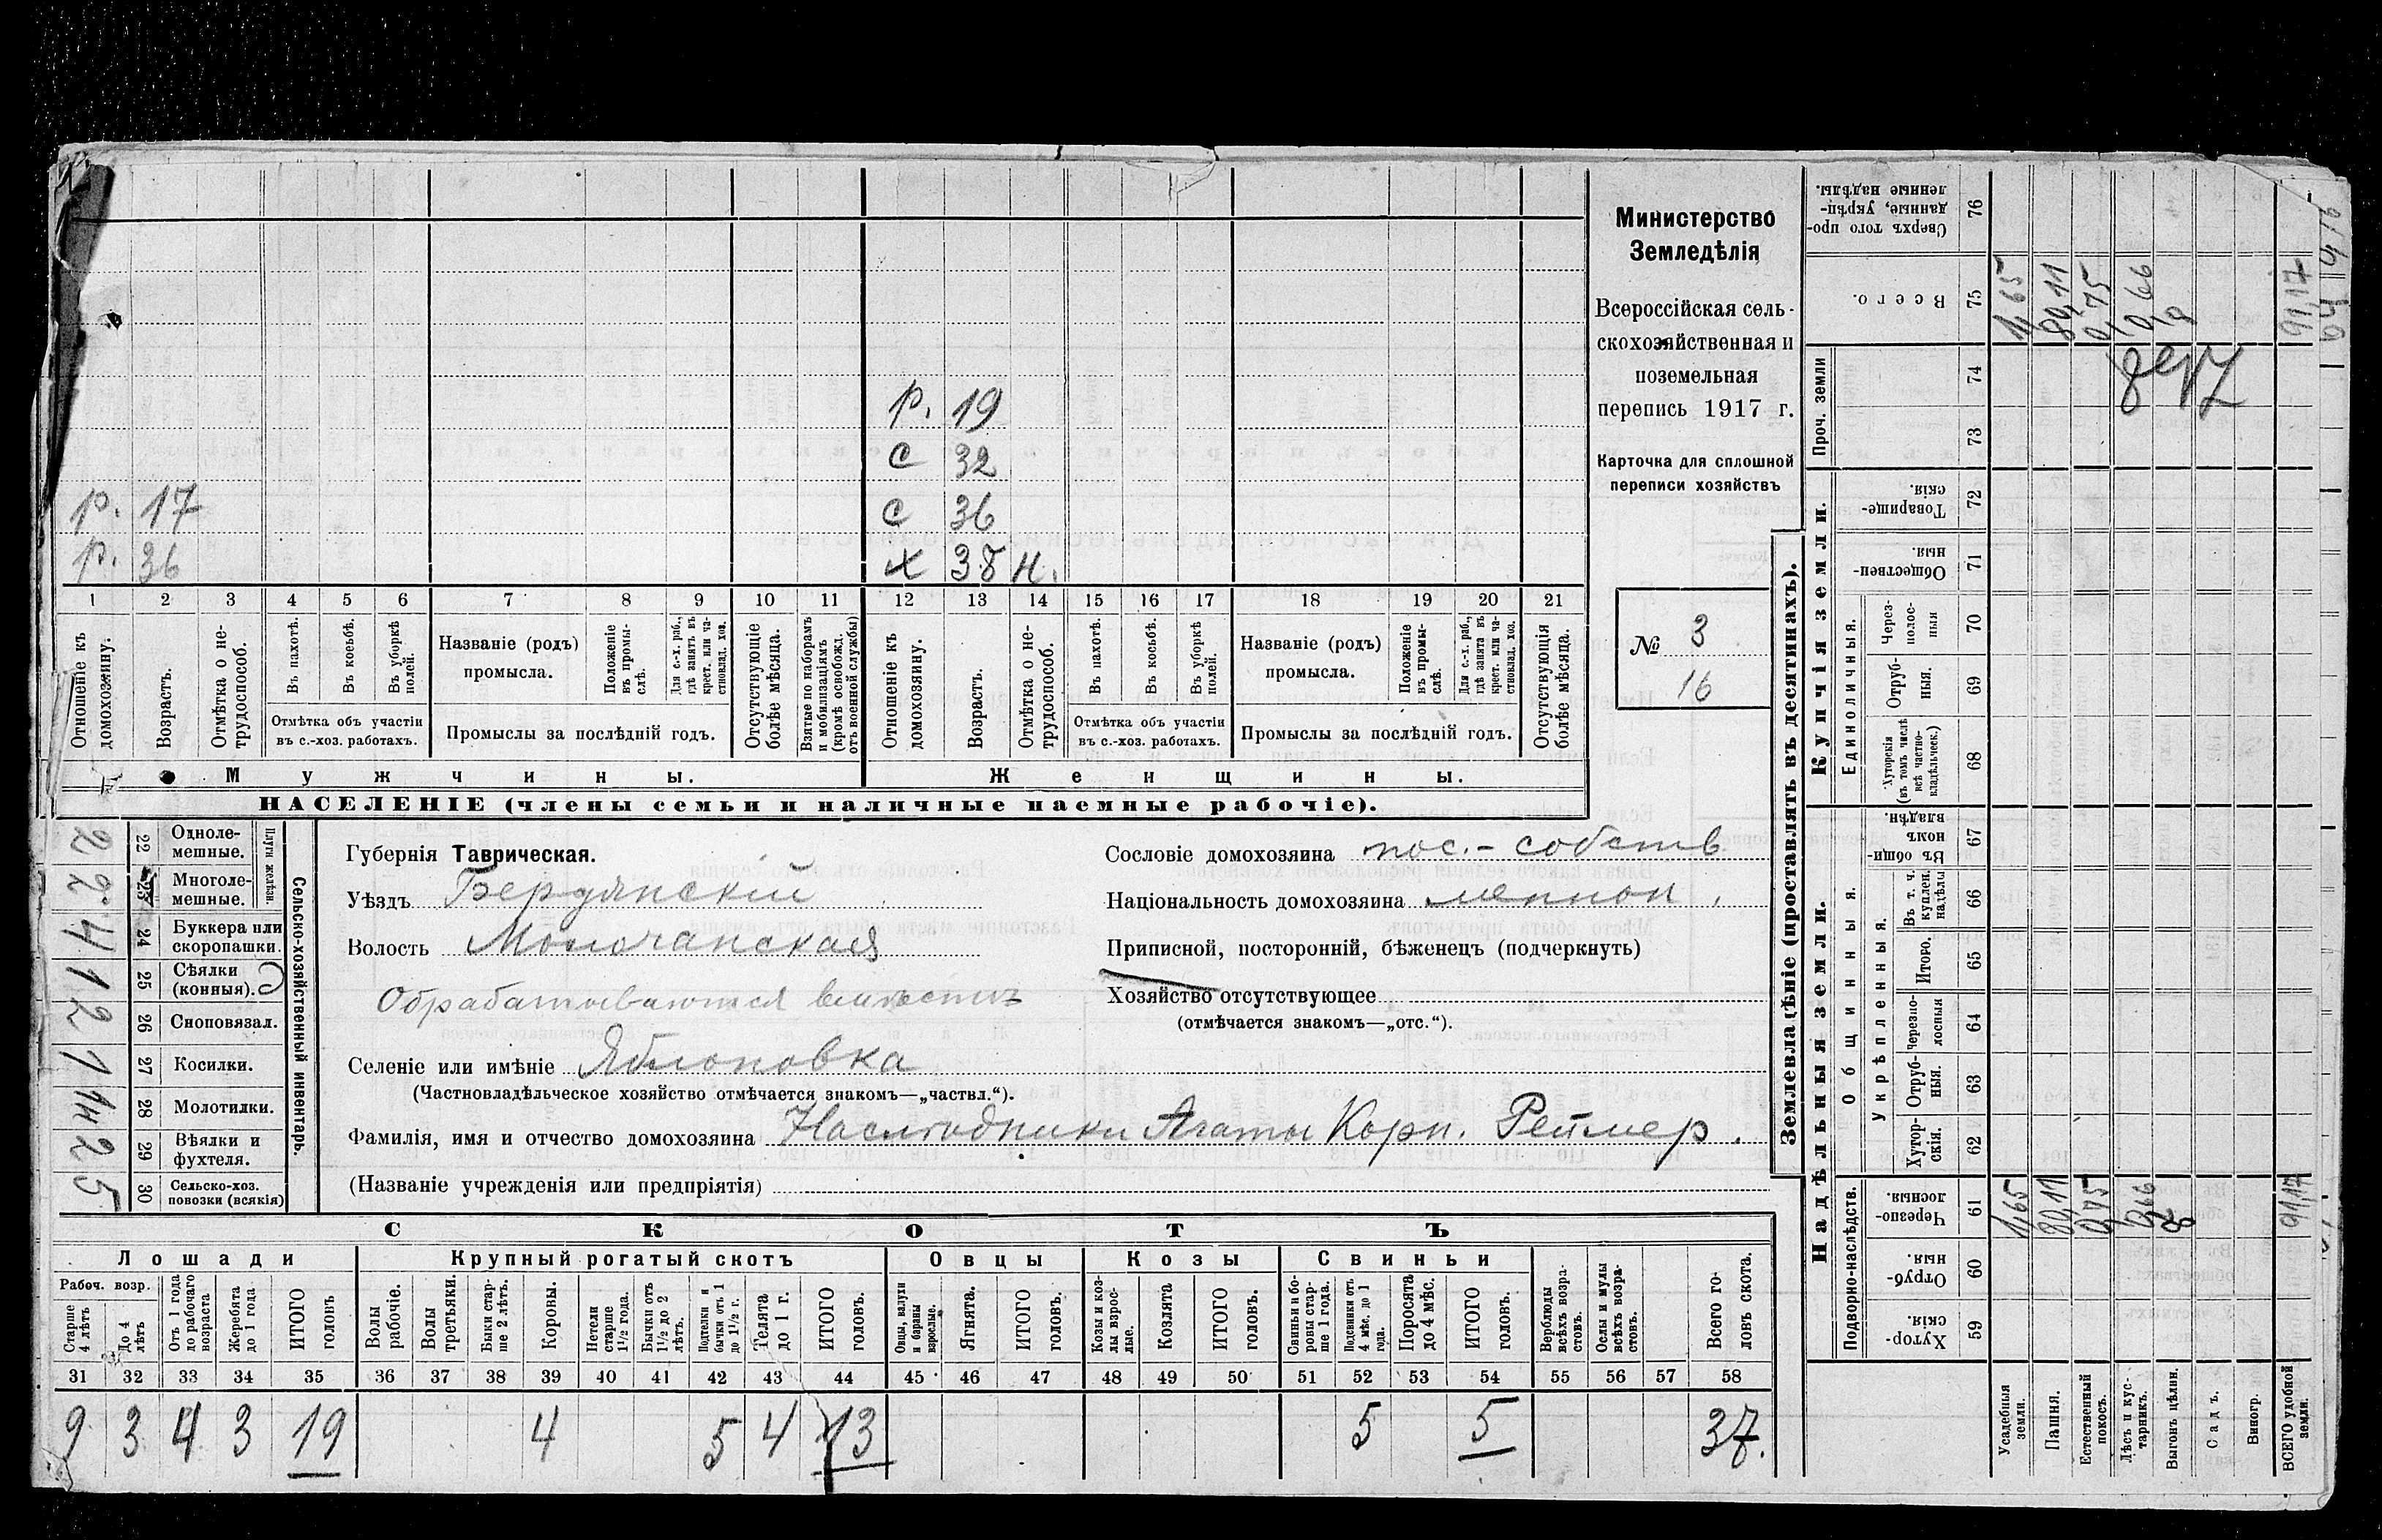 р. 19
с 32
р. 17 с 36
р. 36 х 38 н.
1 2 3 4 5 6 7 8 9 10 11 12 13 14 15 16 17 18 19 20 21
Отношеніе къ домохозяину.
Возрастъ.
Отмѣтка о не-трудоспособ.
Въ пахотѣ.
Въ косьбѣ.
Въ уборкѣ полей.
Отмѣтка объ участіи
въ с.-хоз. работахъ.
Названіе (родъ)
промысла.
Положеніе въ промы-слѣ.
Для с.-х. раб., гдѣ занятъ въ крест. или ча-стновлад. хоз.
Промыслы за послѣдній годъ.
Отсутствующіе болѣе мѣсяца.
Взятые по наборамъ и мобилизаціямъ (кромѣ освобожд. отъ военной службы)
Отношеніе къ домохозяину.
Возрастъ.
Отмѣтка о не-трудоспособ.
Въ пахотѣ.
Въ косьбѣ.
Въ уборкѣ полей.
Отмѣтка объ участіи
въ с.-хоз. работахъ.
Названіе (родъ)
промысла.
Положеніе въ промы-слѣ.
Для с.-х. раб., гдѣ занята въ крест. или ча-стновлад. хоз.
Промыслы за послѣдній годъ.
Отсутствующія болѣе мѣсяца.
Мужчины. Женщины.
НАСЕЛЕНІЕ (члены семьи и наличные наемные рабочіе).
Министерство
Земледѣлія
Всероссійская сель-
скохозяйственная и
поземельная
перепись 1917 г.
Карточка для сплошной
переписи хозяйствъ
№ 3
16
Сельско-хозяйственный инвентарь.
Плуги желѣзн.
2 22 Одноле-мешные.
2 23 Многоле-мешные.
4 24 Буккера или скоропашки.
1 25 Сѣялки (конныя).
2 26 Сноповязал.
1 27 Косилки.
28 Молотилки.
2 29 Вѣялки и фухтеля.
5 30 Сельско-хоз. повозки (всякія)
Губернія Таврическая.
Уѣздъ Бердянскій
Волость Молочанская
Обрабатываются вмѣстѣ
Селеніе или имѣніе Яблоновка
(Частновладѣльческое хозяйство отмѣчается знакомъ—„частвл.“).
Фамилія, имя и отчество домохозяина Наслѣдники Агаты Корн. Реймер.
(Названіе учрежденія или предпріятія)
Сословіе домохозяина пос.-собств
Національность домохозяина меннон.
Приписной, посторонній, бѣженецъ (подчеркнуть)
Хозяйство отсутствующее
(отмѣчается знакомъ—„отс.“).
СКОТЪ
Лошади Крупный рогатый скотъ Овцы Козы Свиньи
Рабоч. возр.
Старше 4 лѣтъ
До 4 лѣтъ
Отъ 1 года до рабочаго возраста
Жеребята до 1 года
ИТОГО головъ
Волы рабочіе.
Волы третьяки.
Быки стар-ше 2 лѣтъ.
Коровы.
Нетели старше 1½ года.
Бычки отъ 1½ до 2 лѣтъ.
Подтелки и бычки отъ 1 до 1½ г.
Телята до 1 г.
ИТОГО головъ.
Овцы, валухи и бараны взрослые.
Ягнята.
ИТОГО головъ.
Козы и коз-лы взрос-лые.
Козлята
ИТОГО головъ.
Свиньи и бо-ровы стар-ше 1 года.
Подсвинки отъ 4 мѣс. до 1 года.
Поросята до 4 мѣс.
ИТОГО головъ.
Верблюды всѣхъ возра-стовъ.
Ослы и мулы всѣхъ возра-стовъ.
Всего го-ловъ скота.
31 32 33 34 35 36 37 38 39 40 41 42 43 44 45 46 47 48 49 50 51 52 53 54 55 56 57 58
9 3 4 3 19 4 5 4 13 5 5 37.
Землевладѣніе (проставлять въ десятинахъ).
Сверхъ того про-данные, укрѣп-ленные надѣлы. 76
Всего. 75 1,65 89,11 0,75 0,66 91,17
Проч. земли 74 73
Купчія земли.
Товарище-скія. 72
Обществен-ныя. 71
Единоличныя.
Через-полос-ныя 70
Отруб-ныя. 69
Хуторскія (въ томъ числѣ всѣ частно-владѣльческ.) 68
Надѣльныя земли.
Общинныя.
Въ общи-номъ владѣн. 67
Укрѣпленныя.
Въ т. ч. куплен. надѣлы 66
Итого. 65
Черезпо-лосныя 64
Отруб-ныя. 63
Хутор-скія. 62
Подворно-наслѣдств.
Черезпо-лосныя. 61 1,65 89,11 0,75 91,17
Отруб-ныя. 60
Хутор-скія. 59
Усадебныя земли.
Пашня.
Естественный покосъ.
Лѣсъ и кус-тарникъ.
Выгонъ цѣлин.
Садъ.
Виногр.
ВСЕГО удобной земли.